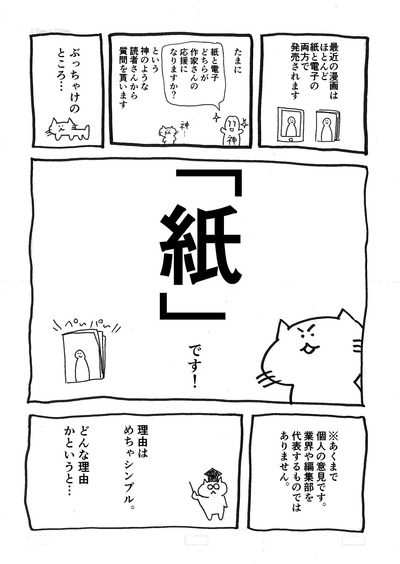 最近の漫画は
ほとんど
紙と電子の
両方で
発売されます
たまに
紙と電子
どちらが
作家さんの
応援に
なりますか？
という
神のような
読者さんから
質問を貰います
神…
神
ぶっちゃけの
ところ…
「紙」
です！
ぺいぱい
※あくまで
個人の意見です。
業界や編集部を
代表するものでは
ありません。
理由は
めちゃシンプル。
どんな理由
かというと…